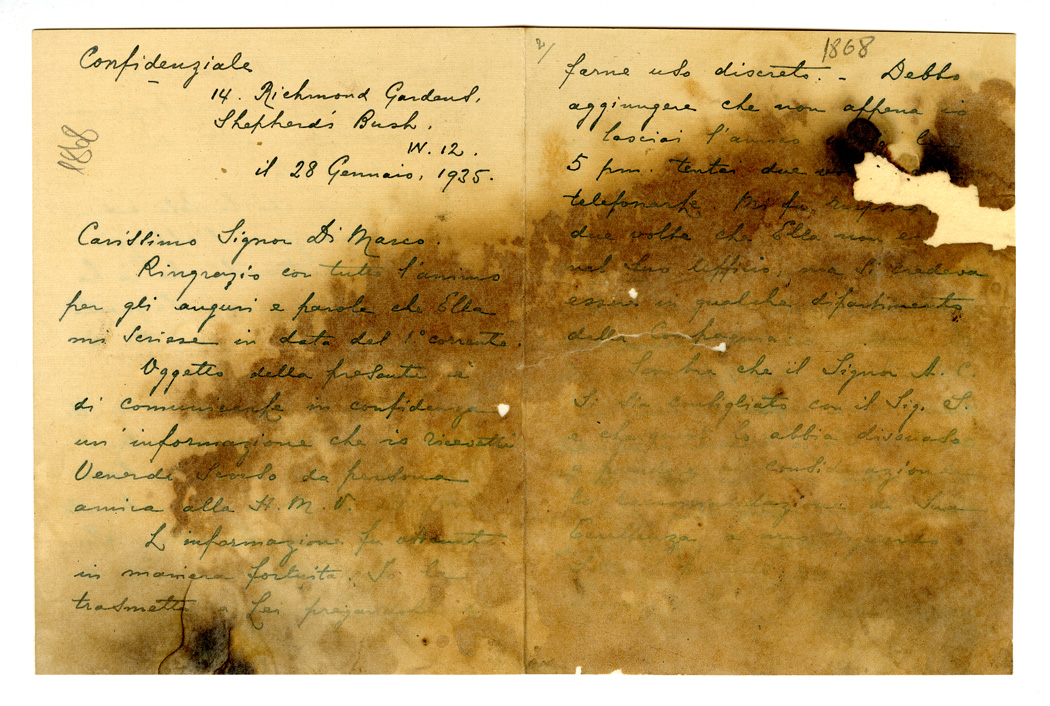 Confidenziale
14. Richmond Gardens,
Shepherd's Bush.
W. 12.
1868
il 28 Gennaio, 1935.
Carissimo Signor Di Marco.
Ringrazio con tutto l'animo
per gli auguri e parole che Ella
mi scrisse in data del 1° corrente.
Oggetto della presente è
di comunicarle in confidenza
un'informazione che io ricevetti
Venerdì scorso da persona
amica alla H. M. V.
L'informazione fu ottenuta
in maniera fortuita. Io la
trasmetto a Lei pregandola
2/
1868
farne uso discreto. - Debbo
aggiungere che non appena io
lasciai l'amico
5 pm. tentai due
telefonarle. Mi fu
due volte che Ella non
nel Suo Ufficio, ma si credeva
essere in qualche dipartimento
della Compagnia.
Sembra che il Signor A. C.
si sia consigliato con il Sig. S.
e che lo abbia dissuaso
a prendere in considerazione
la raccomandazione di Sua
Eccellenza